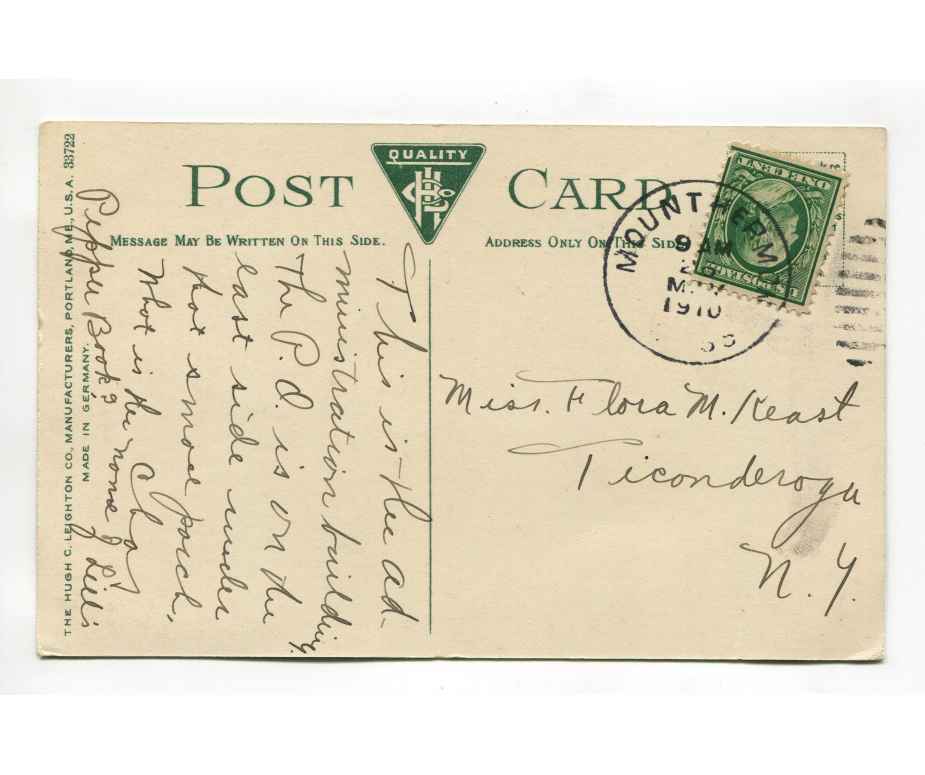 POST CARD
QUALITY
MESSAGE MAY BE WRITTEN ON THIS SIDE.
ADDRESS ONLY ON THIS SIDE
THE HUGH C. LEIGHTON CO., MANUFACTURERS, PORTLAND, ME., U.S.A. 33722
MADE IN GERMANY.
This is the ad-
ministration building.
The P.O. is on the
east side under
that small porch.
Cha
What is the name of
Pepper Book?
MOUNT HERM
9 AM
1910
ONE CENT
U.S. POSTAGE
Miss. Flora M. Keast
Ticonderoga
N. Y.